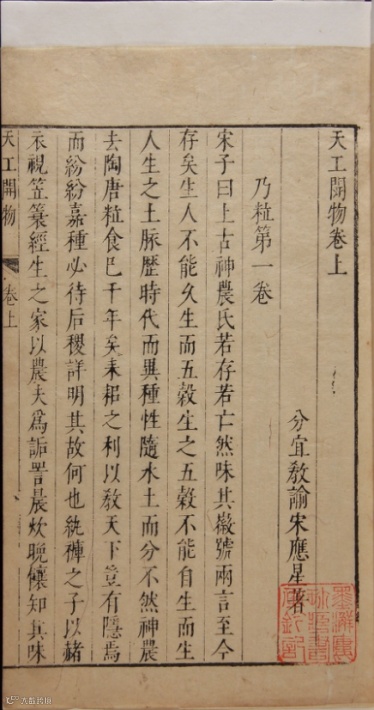 天工開物卷上
分宜教諭宋應星著
乃粒第一卷
宋子曰上古神農氏若存若亡然味其徽號兩言至今
存矣生人不能久生而五穀生之五穀不能自生而生
人生之土脉歷時代而異種性隨水土而分不然神農
去陶唐粒食已千年矣耒耜之利以教天下豈有隱焉
而紛紛嘉種必待后稷詳明其故何也紈褲之子以赭
衣視笠簑經生之家以農夫為詬詈晨炊晚饟知其味
天工開物
卷上